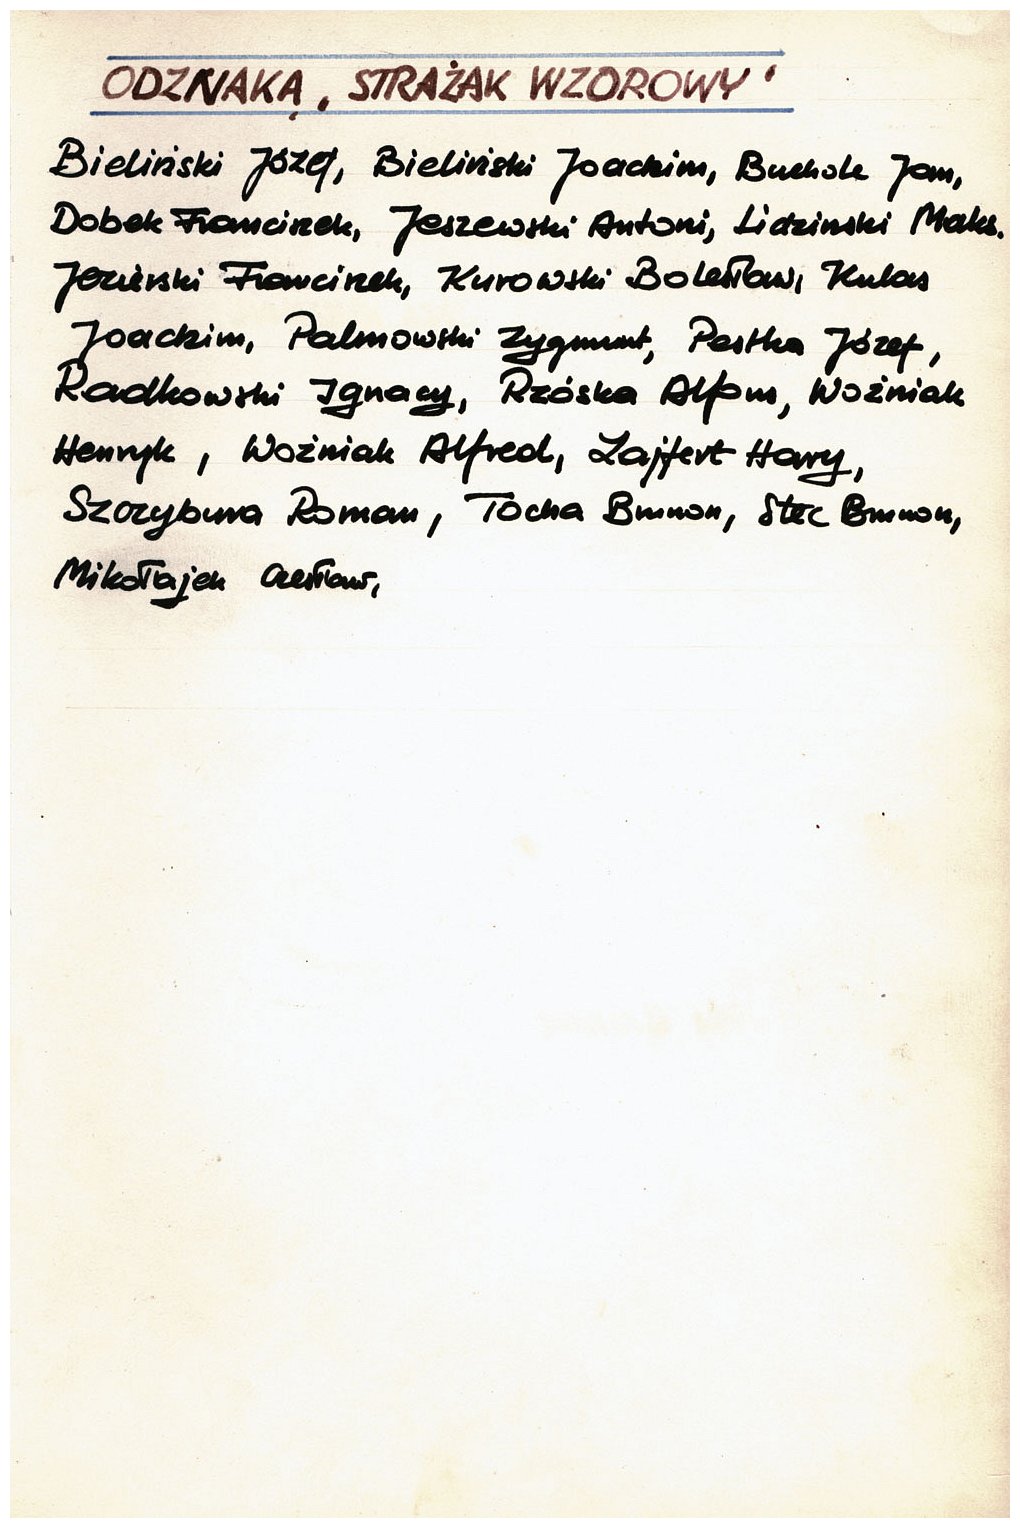 ODZNAKĄ „STRAŻAK WZOROWY"
Bieliński Józef, Bieliński Joachim, Bucholc Jan,
Dobek Franciszek, Jeszewski Antoni, Lidziński Maks.
Jezierski Franciszek, Kurowski Bolesław, Kulas
Joachim, Palmowski Zygmunt, Pestka Józef,
Radkowski Ignacy, Rzóska Alfons, Woźniak
Henryk, Woźniak Alfred, Zajfert Harry,
Szczybura Roman, Tocha Brunon, Stec Brunon,
Mikołajek Czesław,